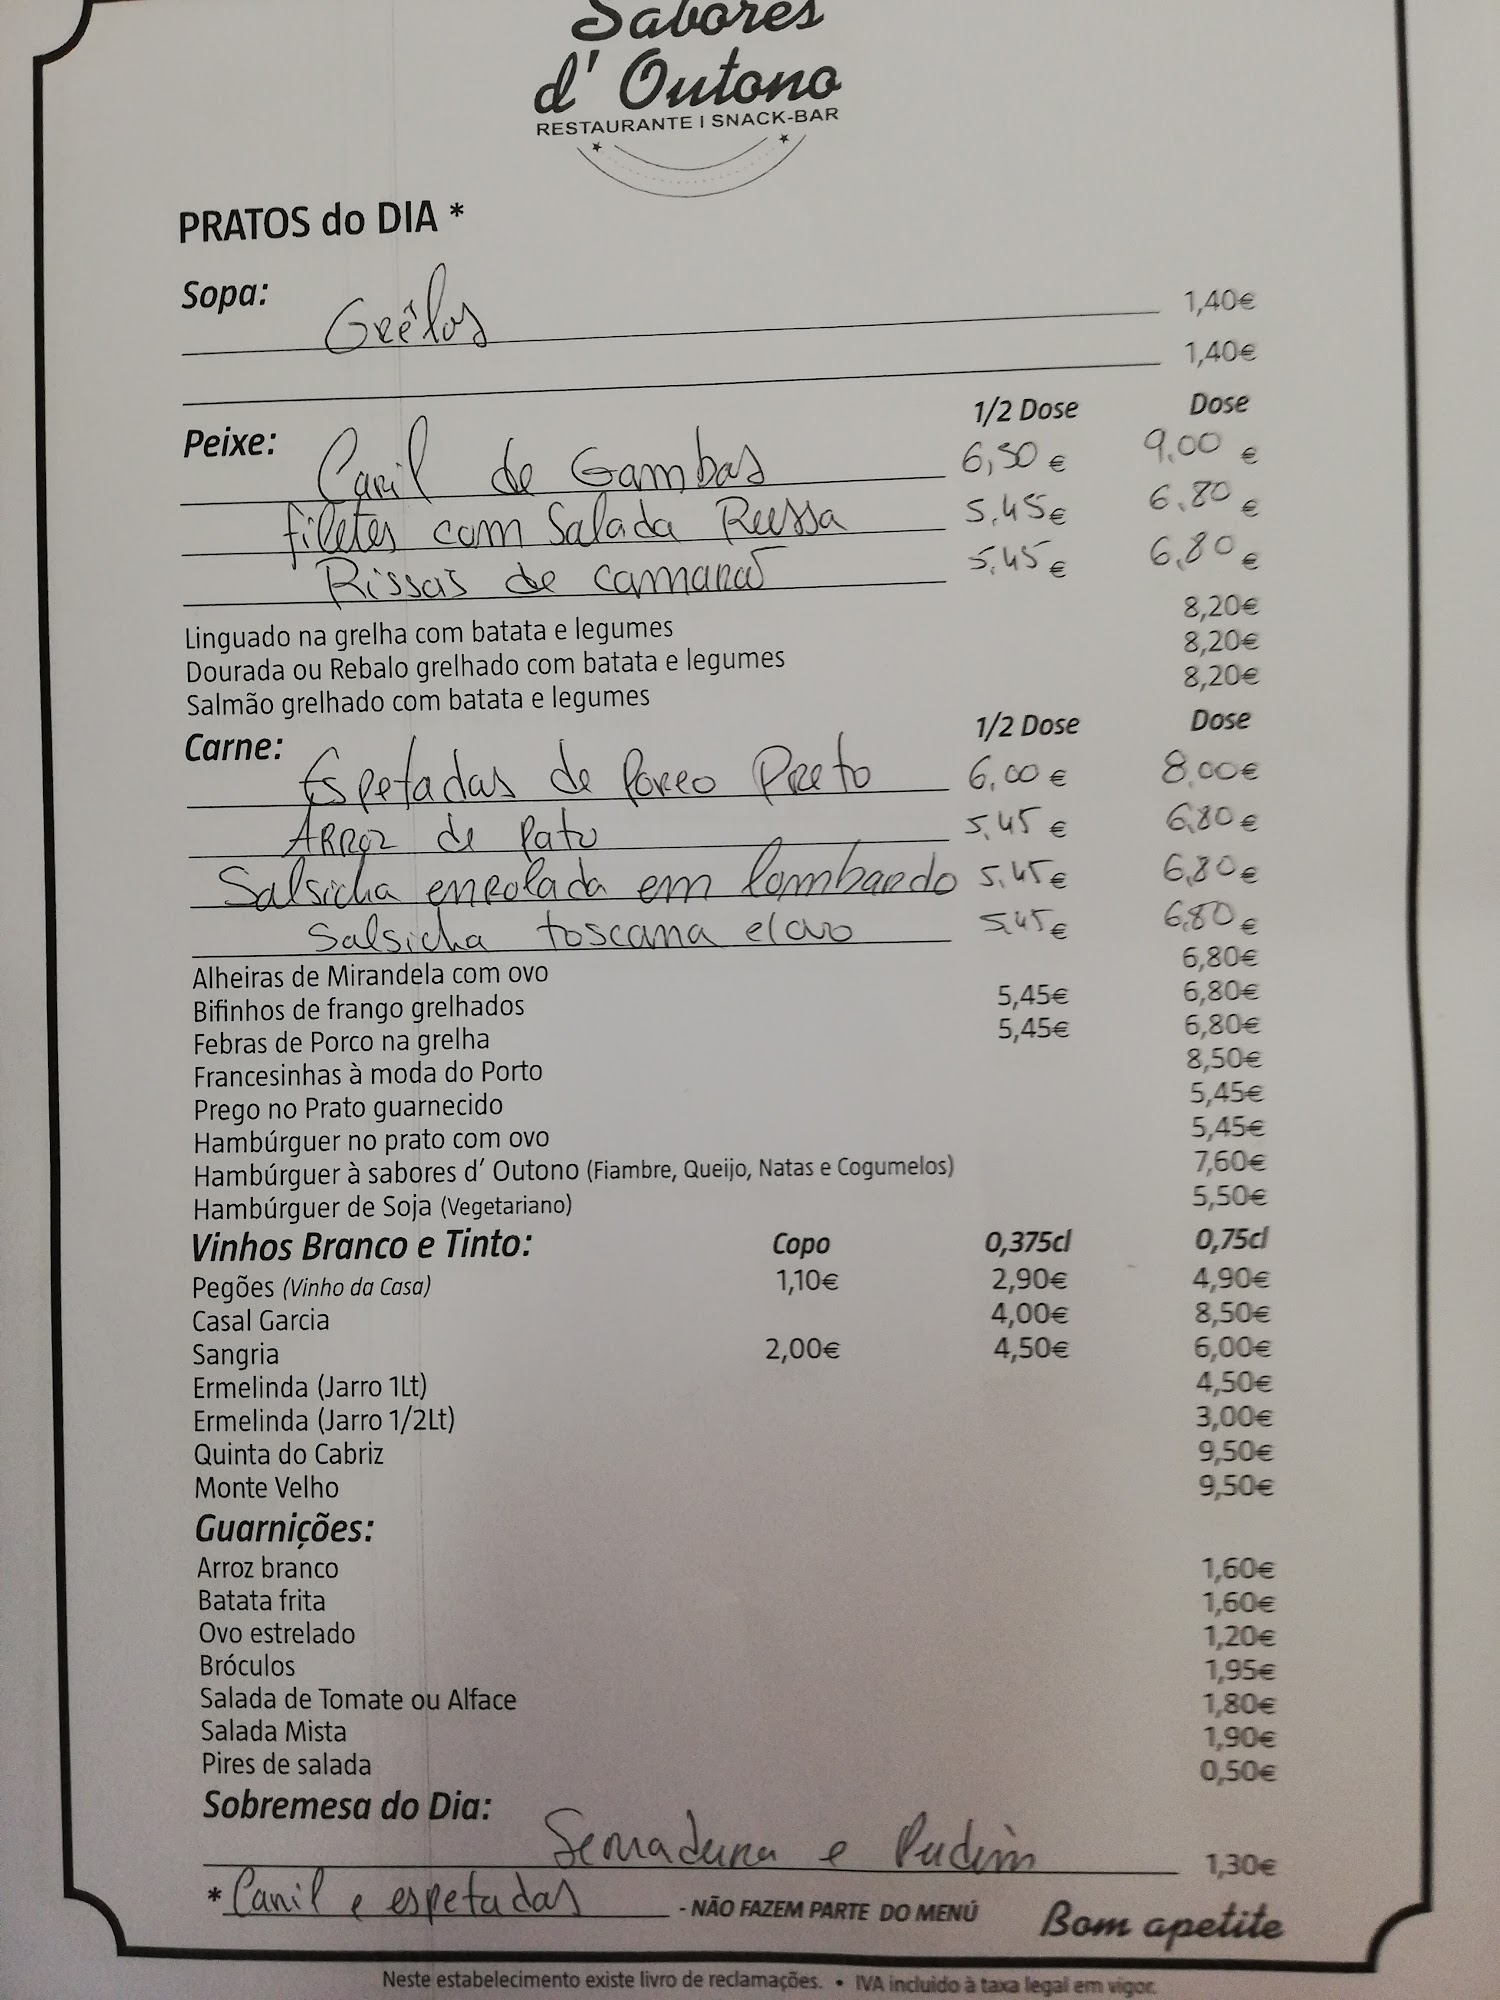 Sabores
d' Outono
RESTAURANTE I SNACK-BAR
PRATOS do DIA *
Sopa: Grêlos 1,40€
1,40€
1/2 Dose Dose
Peixe: Caril de Gambas 6,50 € 9,00 €
filetes com Salada Russa 5,45€ 6,80 €
Rissois de camarao 5,45 € 6,80 €
Linguado na grelha com batata e legumes 8,20€
Dourada ou Rebalo grelhado com batata e legumes 8,20€
Salmão grelhado com batata e legumes 8,20€
1/2 Dose Dose
Carne: Espetadas de Porco Preto 6,00 € 8,00€
Arroz de Pato 5,45 € 6,80€
Salsicha enrolada em lombardo 5,45€ 6,80€
Salsicha toscana e/ovo 5,45€ 6,80€
Alheiras de Mirandela com ovo 6,80€
Bifinhos de frango grelhados 5,45€ 6,80€
Febras de Porco na grelha 5,45€ 6,80€
Francesinhas à moda do Porto 8,50€
Prego no Prato guarnecido 5,45€
Hambúrguer no prato com ovo 5,45€
Hambúrguer à sabores d' Outono (Fiambre, Queijo, Natas e Cogumelos) 7,60€
Hambúrguer de Soja (Vegetariano) 5,50€
Vinhos Branco e Tinto: Copo 0,375cl 0,75cl
Pegões (Vinho da Casa) 1,10€ 2,90€ 4,90€
Casal Garcia 4,00€ 8,50€
Sangria 2,00€ 4,50€ 6,00€
Ermelinda (Jarro 1Lt) 4,50€
Ermelinda (Jarro 1/2Lt) 3,00€
Quinta do Cabriz 9,50€
Monte Velho 9,50€
Guarnições:
Arroz branco 1,60€
Batata frita 1,60€
Ovo estrelado 1,20€
Bróculos 1,95€
Salada de Tomate ou Alface 1,80€
Salada Mista 1,90€
Pires de salada 0,50€
Sobremesa do Dia: Semadura e Pudim 1,30€
* Caril e espetadas - NÃO FAZEM PARTE DO MENÚ
Bom apetite
Neste estabelecimento existe livro de reclamações. • IVA incluido à taxa legal em vigor.